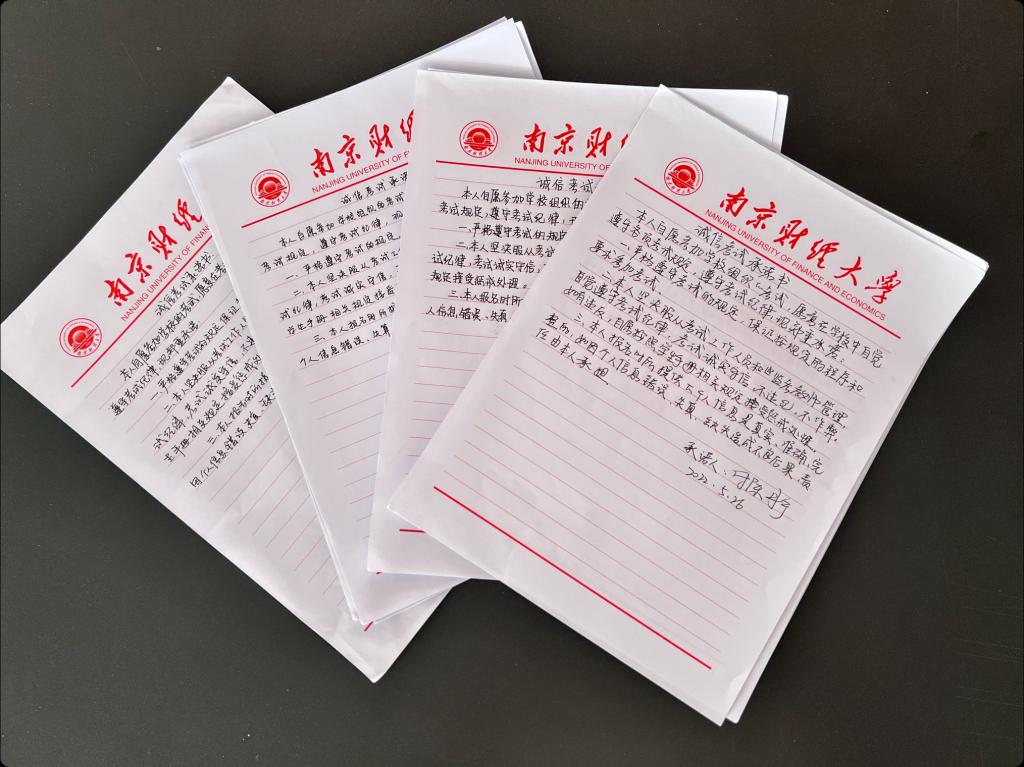 南京财
NANJING UNIVERSITY OF FINAN
诚信考试承诺书
本人自愿参加学校组织的考试,愿意在
遵守考试纪律,现郑重承诺
一、严格遵守考试的规定,保证
二、本人坚决服从考试工作人
试纪律,考试诚实守信,不
三、本人报名时所
因个人信息错误
南京财经
NANJING UNIVERSITY OF F
诚信考试承诺
本人自愿参加学校组织的考试
考试规定,遵守考试纪律,现
一、严格遵守考试的规定
二、本人坚决服从考试工
试纪律,考试诚实守信
学生手册相关规定接
三、本人报名时所
个人信息错误、失真
南京财
NANJING UNIVERS
诚信考试
本人自愿参加学校组织的
考试规定,遵守考试纪律,
一、严格遵守考试的规定
二、本人坚决服从考试
试纪律,考试诚实守信,
规定接受惩戒处理。
三、本人报名时所
人信息错误、失真
南京财经大学
NANJING UNIVERSITY OF FINANCE AND ECONOMICS
诚信考试承诺书
本人自愿参加学校组织的考试,愿意在学校中自觉
遵守考试规定,遵守考试纪律,现郑重承诺:
一、严格遵守考试的规定,保证按规定的程序和
要求参加考试。
二、本人坚决服从考试工作人员和监考老师管理,
自觉遵守考试纪律,考试诚实守信,不违纪,不作弊。
如有违反,自愿按照学生手册相关规定接受惩戒处理。
三、本人报名时所提供的个人信息是真实、准确、完
整的,如因个人信息错误、失真、缺失造成不良后果,责
任由本人承担。
承诺人:
2022.5.26